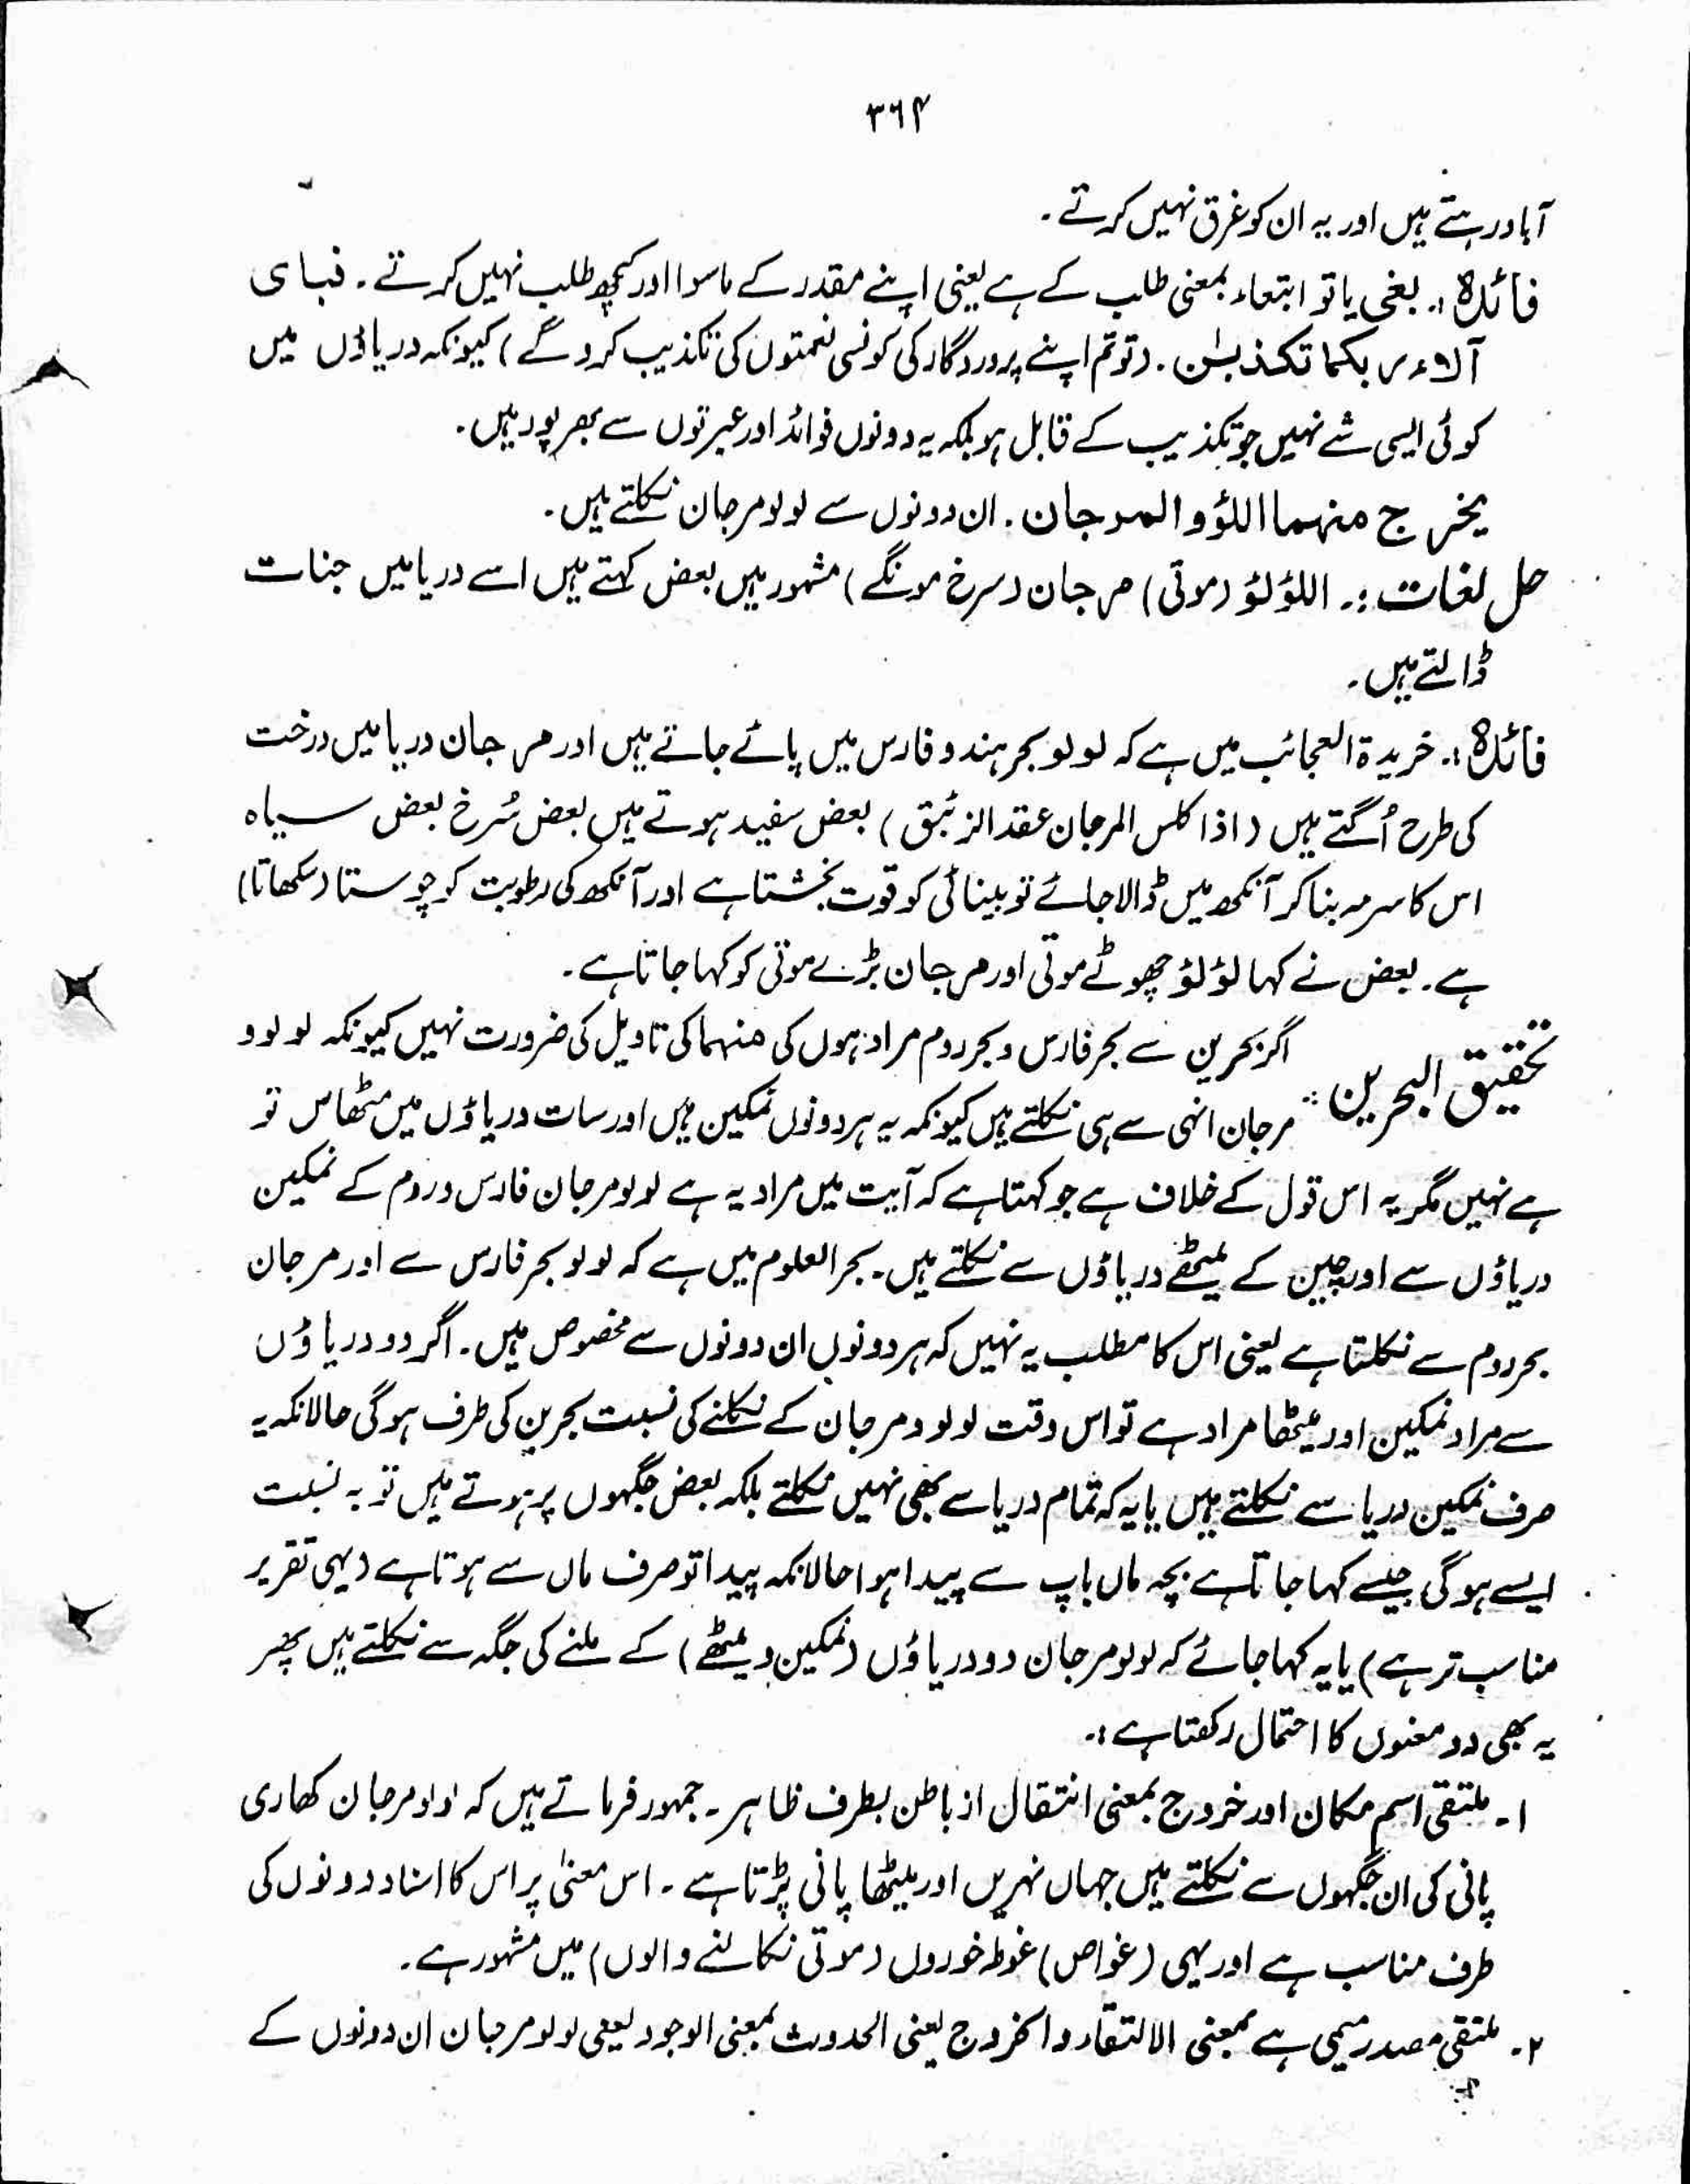 ۳٦۴
آباد رہتے ہیں اور یہ ان کو غرق نہیں کرتے ۔
فائدہ :۔ بغی یا تو ابتغاء بمعنی طلب کے ہے یعنی اپنے مقدر کے ماسوا اور کچھ طلب نہیں کرتے ۔ فبای
آلاء ربکما تکذبٰن ۔ (تو تم اپنے پروردگار کی کونسی نعمتوں کی تکذیب کرو گے) کیونکہ دریاؤں میں
کوئی ایسی شے نہیں جو تکذیب کے قابل ہو بلکہ یہ دونوں فوائد اور عبرتوں سے بھرپور ہیں ۔
یخرج منہما اللؤ والمرجان ۔ ان دونوں سے لولو مرجان نکلتے ہیں ۔
حل لغات :۔ اللؤلؤ (موتی) مرجان (سرخ مونگے) مشہور ہیں بعض کہتے ہیں اسے دریا میں جنات
ڈالتے ہیں ۔
فائدہ :۔ خریدۃ العجائب میں ہے کہ لولو بحر ہند و فارس میں پائے جاتے ہیں اور مرجان دریا میں درخت
کی طرح اُگتے ہیں (اذا کلس المرجان عقد الزئبق) بعض سفید ہوتے ہیں بعض سُرخ بعض سیاہ
اس کا سرمہ بنا کر آنکھ میں ڈالا جائے تو بینائی کو قوت بخشتا ہے اور آنکھ کی رطوبت کو چوستا (سکھاتا)
ہے ۔ بعض نے کہا لؤلؤ چھوٹے موتی اور مرجان بڑے موتی کو کہا جاتا ہے ۔
تحقیق البحرین :۔ اگر بحرین سے بحر فارس و بحر روم مراد ہوں کی منہما کی تاویل کی ضرورت نہیں کیونکہ لولو و
مرجان انہی سے ہی نکلتے ہیں کیونکہ یہ ہر دونوں نمکین ہیں اور سات دریاؤں میں مٹھاس تو
ہے نہیں مگر یہ اس قول کے خلاف ہے جو کہتا ہے کہ آیت میں مراد یہ ہے لولو مرجان فارس و روم کے نمکین
دریاؤں سے اور چین کے میٹھے دریاؤں سے نکلتے ہیں ۔ بحر العلوم میں ہے کہ لولو بحر فارس سے اور مرجان
بحر روم سے نکلتا ہے یعنی اس کا مطلب یہ نہیں کہ ہر دونوں ان دونوں سے مخصوص ہیں ۔ اگر دو دریاؤں
سے مراد نمکین اور میٹھا مراد ہے تو اس وقت لولو و مرجان کے نکلنے کی نسبت بحرین کی طرف ہو گی حالانکہ یہ
صرف نمکین دریا سے نکلتے ہیں یا یہ کہ تمام دریا سے بھی نہیں نکلتے بلکہ بعض جگہوں پر ہوتے ہیں تو یہ نسبت
ایسے ہو گی جیسے کہا جاتا ہے بچہ ماں باپ سے پیدا ہوا حالانکہ پیدا تو صرف ماں سے ہوتا ہے (یہی تقریر
مناسب تر ہے) یا یہ کہا جائے کہ لولو مرجان دو دریاؤں (نمکین و میٹھے) کے ملنے کی جگہ سے نکلتے ہیں پھر
یہ بھی دو معنوں کا احتمال رکھتا ہے :۔
۱۔ ملتقی اسم مکان اور خروج بمعنی انتقال از باطن بطرف ظاہر ۔ جمہور فرماتے ہیں کہ لولو مرجان کھاری
پانی کی ان جگہوں سے نکلتے ہیں جہاں نہریں اور میٹھا پانی پڑتا ہے ۔ اس معنیٰ پر اس کا اسناد دونوں کی
طرف مناسب ہے اور یہی (غواص) غوطہ خوروں (موتی نکالنے والوں) میں مشہور ہے ۔
۲۔ ملتقی مصدر میمی ہے بمعنی الالتقاء والخروج یعنی الحدوث بمعنی الوجود یعنی لولو مرجان ان دونوں کے